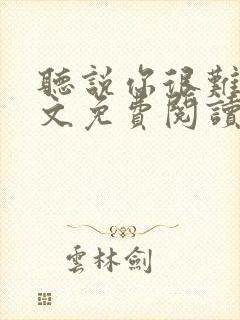 聽說你很難
文免費閱讀
雲林劍